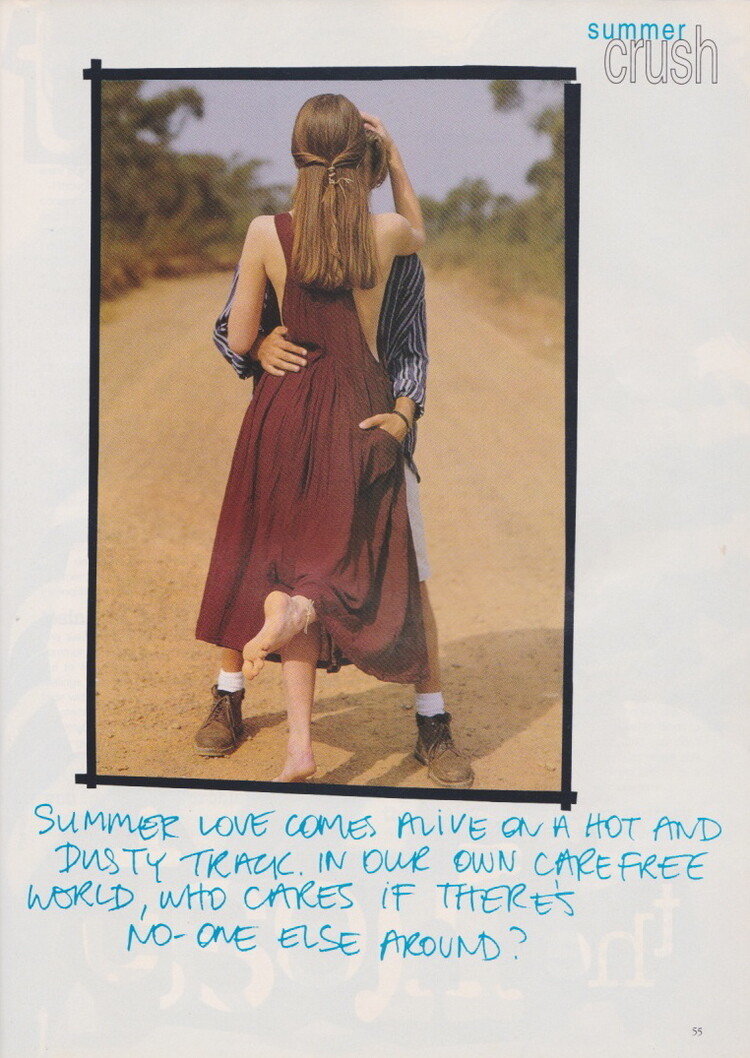 summer
crush
SUMMER LOVE COMES ALIVE ON A HOT AND
DUSTY TRACK. IN OUR OWN CAREFREE
WORLD, WHO CARES IF THERE'S
NO-ONE ELSE AROUND?
55